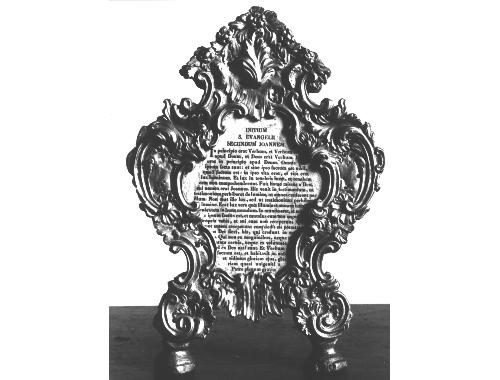 INITIUM
S. EVANGELII
SECUNDUM JOANNEM.
principio erat Verbum, et Verbum
apud Deum, et Deus erat Verbum.
erat in principio apud Deum. Omnia
ipsum facta sunt: et sine ipso factum est nihil,
quod factum est: in ipso vita erat, et vita erat
lux hominum. Et lux in tenebris lucet, et tenebræ
eam non comprehenderunt. Fuit homo missus a Deo,
cui nomen erat Joannes. Hic venit in testimonium, ut
testimonium perhiberet de lumine, ut omnes crederent per
illum. Non erat ille lux, sed ut testimonium perhiberet de
lumine. Erat lux vera quæ illuminat omnem hominem
venientem in hunc mundum. In mundo erat, et mundus
ipsum factus est, et mundus eum non
propria venit, et sui eum non receperunt.
autem receperunt eum, dedit eis potestatem
Dei fieri, his, qui credunt in
Qui non ex sanguinibus, neque
carnis, neque ex voluntate
ex Deo nati sunt. Et Verbum
factum est, et habitavit in
et vidimus gloriam ejus,
quasi unigeniti a
Patre plenum gratiæ